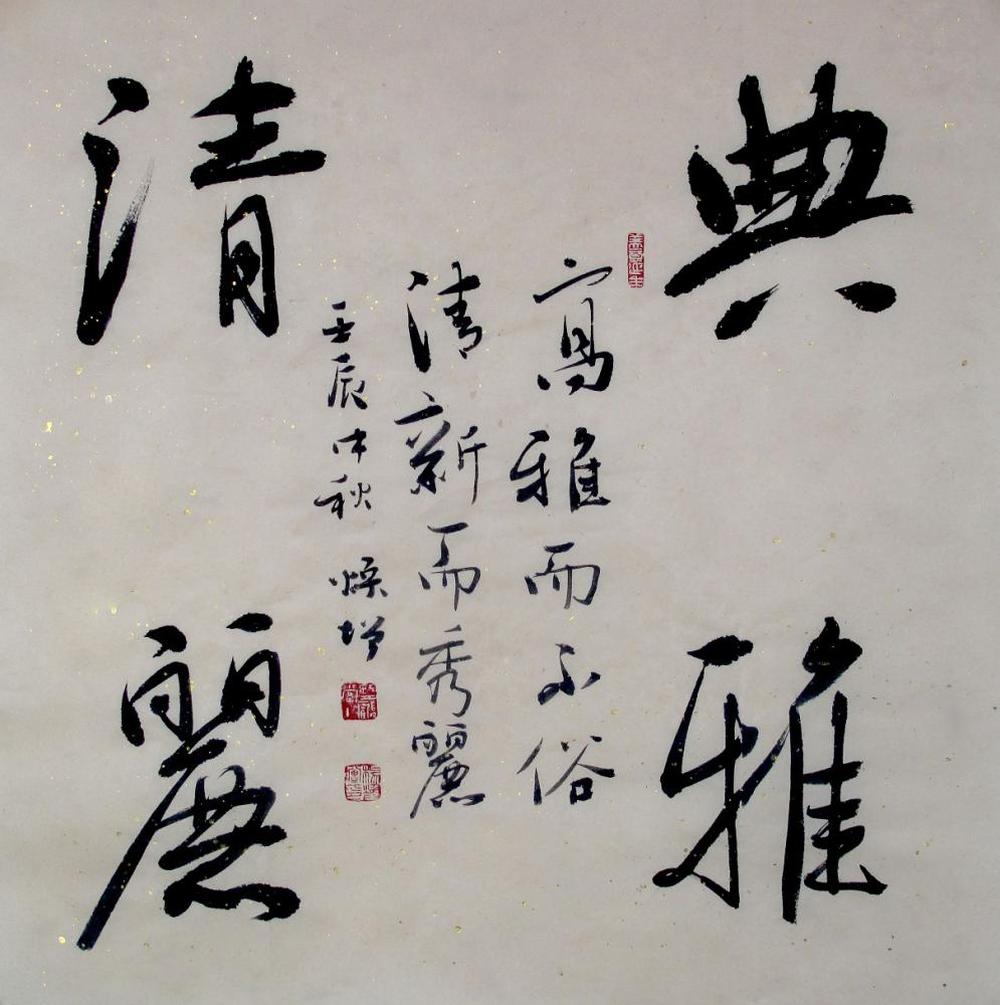 典雅
清麗
高雅而不俗
清新而秀麗
壬辰中秋 煥增